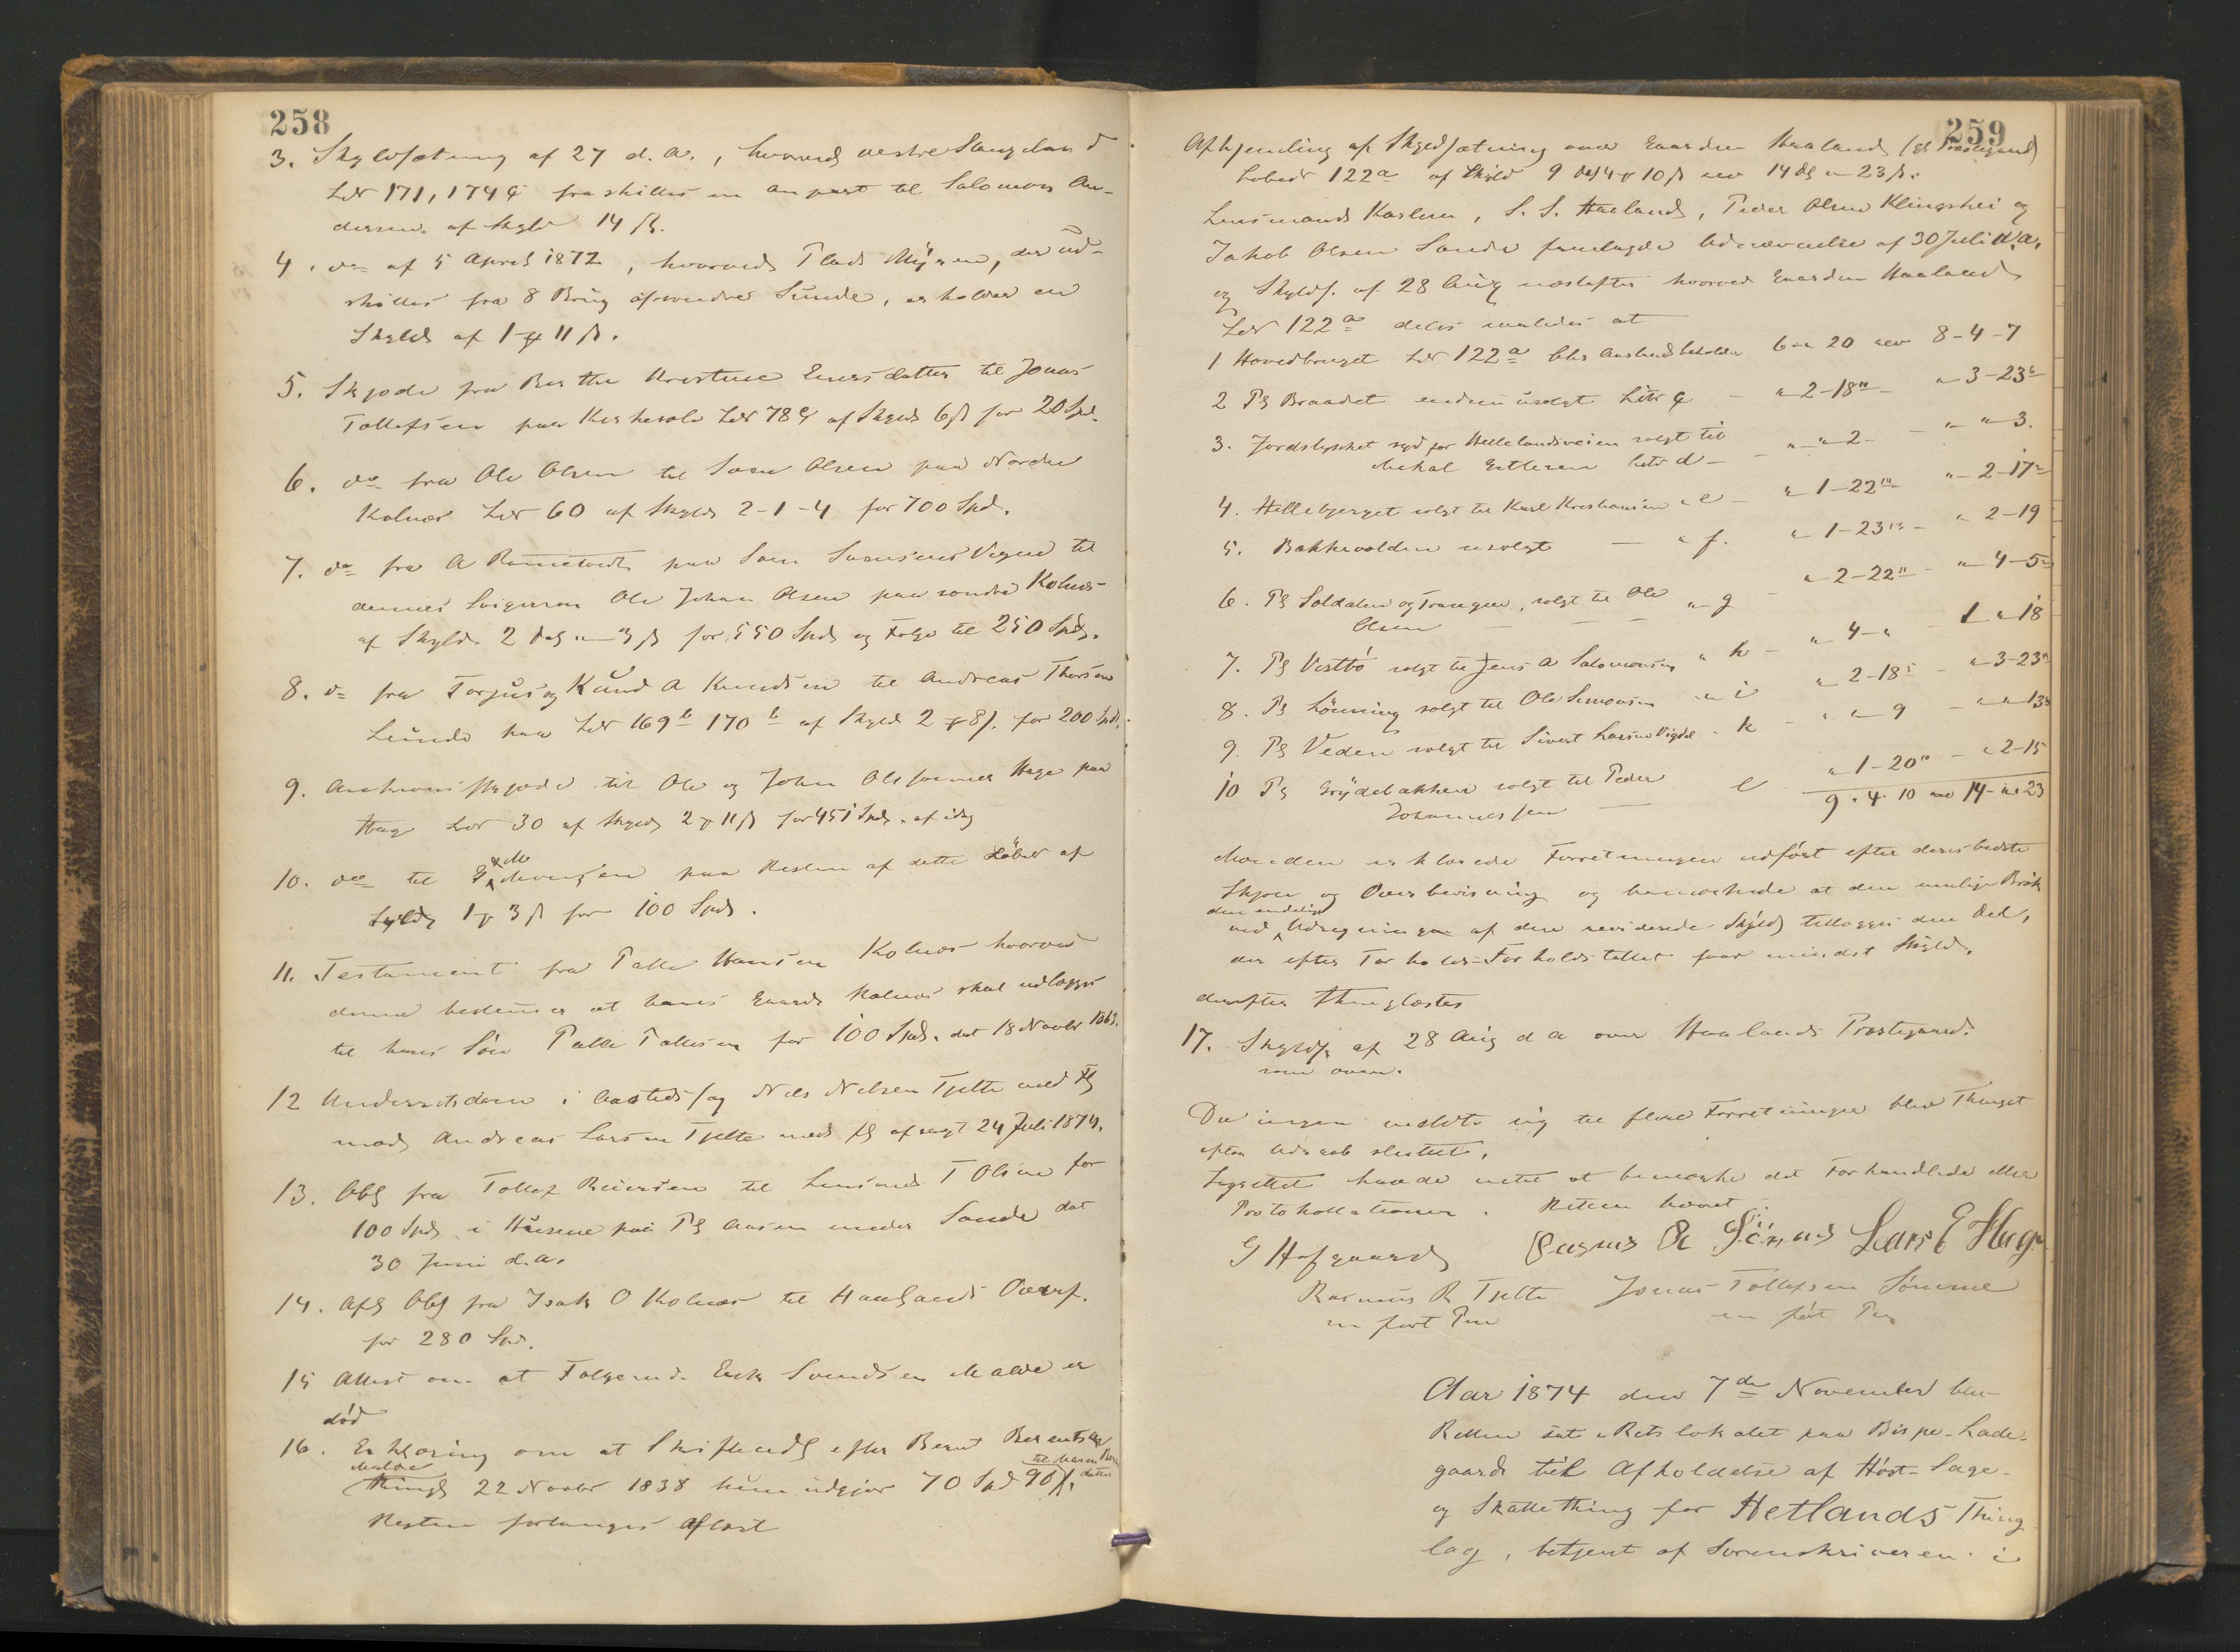 258
3. Skyldsætning af 27 d. A., hvorved vestre Stangeland
LNr 171, 174 c fraskilles en anpart til Salomon An-
dersen af Skyld 14 ß.
4. do af 5 April 1872, hvorved Plads Myren, der ud-
skilles fra 8 Brug af søndre Sunde, erholder en
Skyld af 1 # 11 ß.
5. Skjøde fra Berthe Kristine Einersdatter til Jonas
Tollefsen paa LNr 78 af Skyld 6 ß for 20 Spd.
6. do fra Ole Olsen til Olsen paa Nordre
Kolnes LNr 60 af Skyld 2-1-4 for 700 Spd.
7. do fra A paa Vegne til
dennes Svigersøn Ole Johan Olsen paa søndre Kolnes
af Skyld 2 3 ß for 550 Spd og Folge til 250 Spd.
8. do fra Torjus og Knud A Knudsen til Andreas Thorsen
Sunde paa LNr 169 b 170 b af Skyld 2 # 8 ß. for 200 Spd.
9. Auktionsskjøde til Ole og John Olsønner Hage paa
Hage LNr 30 af Skyld 2 # 11 ß for 451 Spd. af idag
10. do til paa Resten af dette Løbnr af
Skyld 1 # 3 ß for 100 Spd.
11. Testament fra Palle Hansen Kolnes hvorved
denne bestemmer at hans Gaard Kolnes skal udlægges
til hans Søn Palle Pallesen for 100 Spd. dat 18 Novbr 1863.
12 Underretsdom i Aastedssag Nils Nilsen Tjelte med Fl
mod Andreas Larsen Tjelte med fl afsagt 24 Juli 1874.
13. Obl fra Tollef Reiersen til Lensmd T Olsen for
100 Spd i Husene paa Pl Aasen under Sande dat
30 Juni d. a.
14. Afl Obl fra Isak O Kolnes til Haalands Overf.
for 280 Spd.
15 Attest om at Folgemd. Erik Svendsen Malde er
død
16. Erklæring om at Skifteudl efter Bernt Berentsen
Malde til Maren Bernts
Thingl 22 Novbr 1838 kun udgjør 70 Spd 90 ß. datter
Resten forlanges aflæst
259
Afhjemling af Skyldsætning over Gaarden Haaland (et Præstegaard)
Løbenr 122a af Skyld 9 4 # 10 ß rev 14 23 ß.
Lensmand Karlsen, S. S. Haaland, Peder Olsen Klingshei og
Jakob Olsen Sande fremlagde Udnævnelse af 30 Juli d. a.
og Skyldf. af 28 Aug næstefter hvorved Gaarden Haaland
LNr 122 a deles saaledes at
1 Hovedbruget LNr 122 a beholder 6 " 20 rev 8-4-7
2 Pl Braadet endnu usolgt Litr c - " 2-18 - " 3-23
3. Jordstykket syd for Hellelandsveien solgt til - " " 2 - " " 3.
Mikal litr d -
4. Hellebjerget solgt til Karl Kristiansen " e - " 1-22 " 2-17
5. Bakkevolden usolgt - " f. " 1-23 - " 2-19
6. Pl Soldalen og Trangen, solgt til Ole " g - " 2-22 - " 4-5
Olsen
7. Pl Vestbø solgt til Jens A Salomonsen " h - " 4- " - 1 " 18
8. Pl Lønning solgt til Ole Simonsen " i " 2-18 - " 3-23
9. Pl Veden solgt til Sivert Larsen Vigdel " k - " " 9 - " " 13
10 Pl Grydebakken solgt til Peder l " 1-20 - " 2-15
Johannessen 9. 4. 10 rev 14 " 23
Mænden erklærede Forretningen udført efter deres bedste
Skjøn og Overbevisning og bemærkede at den mulige Brøk
den endelige
ved Udregningen af den reviderede Skyld tillægges den Del,
der efter Forholds-Forholdstallet faar mindst Skyld.
derefter thinglæstes
17. Skyldf af 28 Aug d a over Haalands Præstegaard.
som oven.
Da ingen meldte sig til flere Forretninger blev Thinget
efter Udraab sluttet.
Lagrettet havde intet at bemærke det Forhandlede eller
Protokollationen. Retten hævet
G Hofgaard Lars E Hage
Rasmus R Tjelte Jonas Tollefsen Sømme
m ført Pen m ført Pen
Aar 1874 den 7de November blev
Retten sat i Retslokalet paa Bispe-Lade-
gaard til Afholdelse af Høst- Sage-
og Skattething for Hetlands Thing-
lag, betjent af Sorenskriveren i